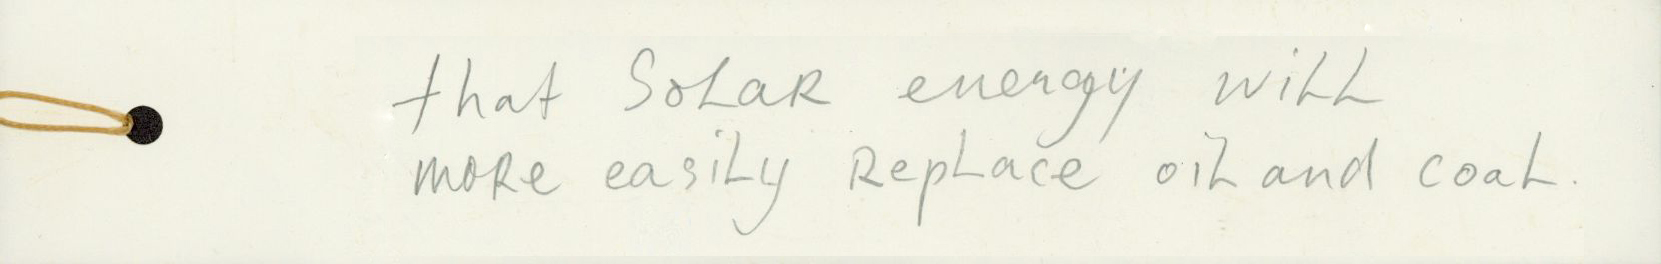 that Solar energy will
more easily replace oil and coal.